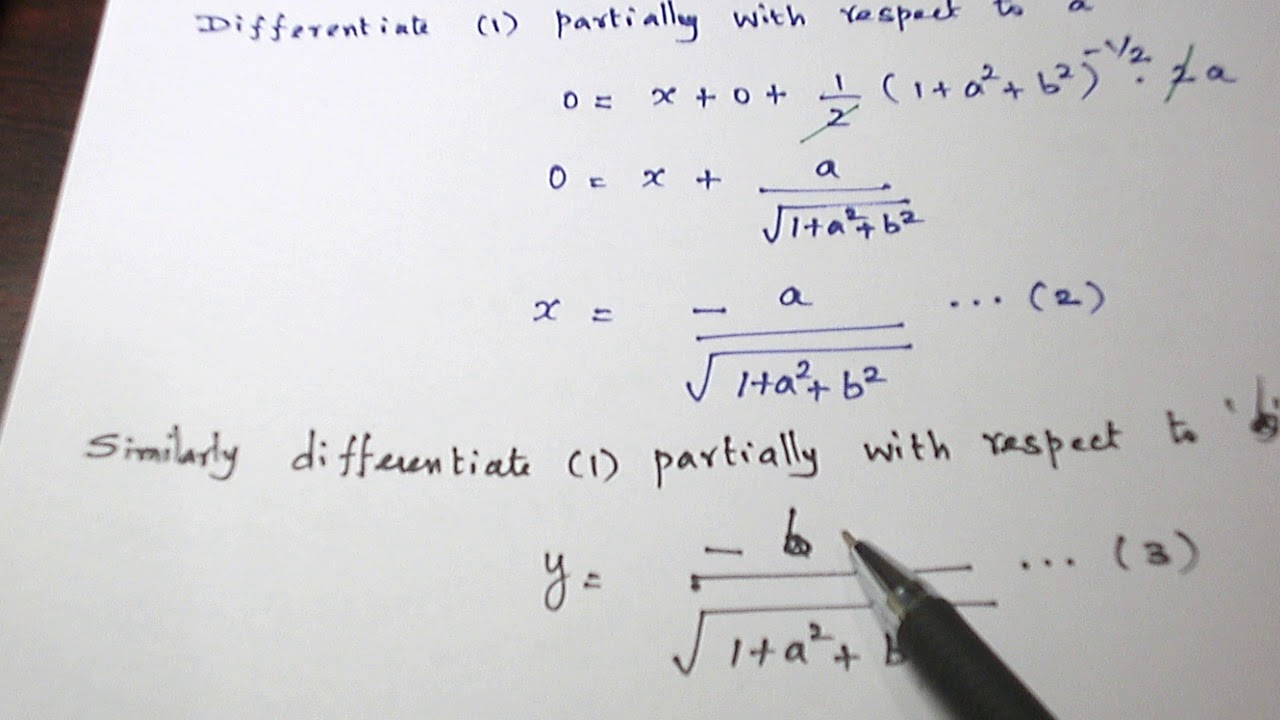 Differentiate (1) partially with respect to a
0 = x + 0 + 1/2 (1 + a² + b²)^-1/2 . 2a
0 = x + a/√(1+a²+b²)
x = - a/√(1+a²+b²) ... (2)
Similarly differentiate (1) partially with respect to 'b'
y = - b/√(1+a²+b ... (3)